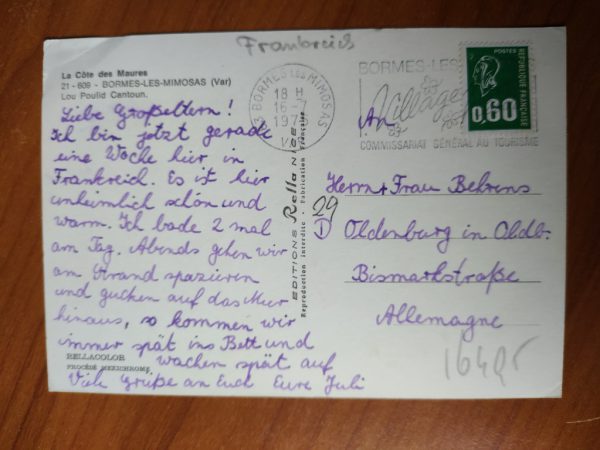 Frankreich
La Côte des Maures
21 - 609 - BORMES-LES-MIMOSAS (Var)
Lou Poulid Cantoun.
Liebe Großeltern!
Ich bin jetzt gerade
eine Woche hier in
Frankreich. Es ist hier
unheimlich schön und
warm. Ich bade 2 mal
am Tag. Abends gehen wir
am Strand spazieren
und gucken auf das Meer
hinaus, so kommen wir
immer spät ins Bett und
wachen spät auf
Viele Grüße an Euch Eure Juli
RELLACOLOR
PROCÉDÉ MEXICHROME
EDITIONS Rella NICE
Reproduction interdite - Fabrication Française
83 BORMES LES MIMOSAS
18 H
16-7
VAR
BORMES-LES
Village
COMMISSARIAT GÉNÉRAL AU TOURISME
POSTES
RÉPUBLIQUE FRANÇAISE
0,60
An
Herrn + Frau Behrens
29
D Oldenburg in Oldb.
Bismarkstraße
Allemagne